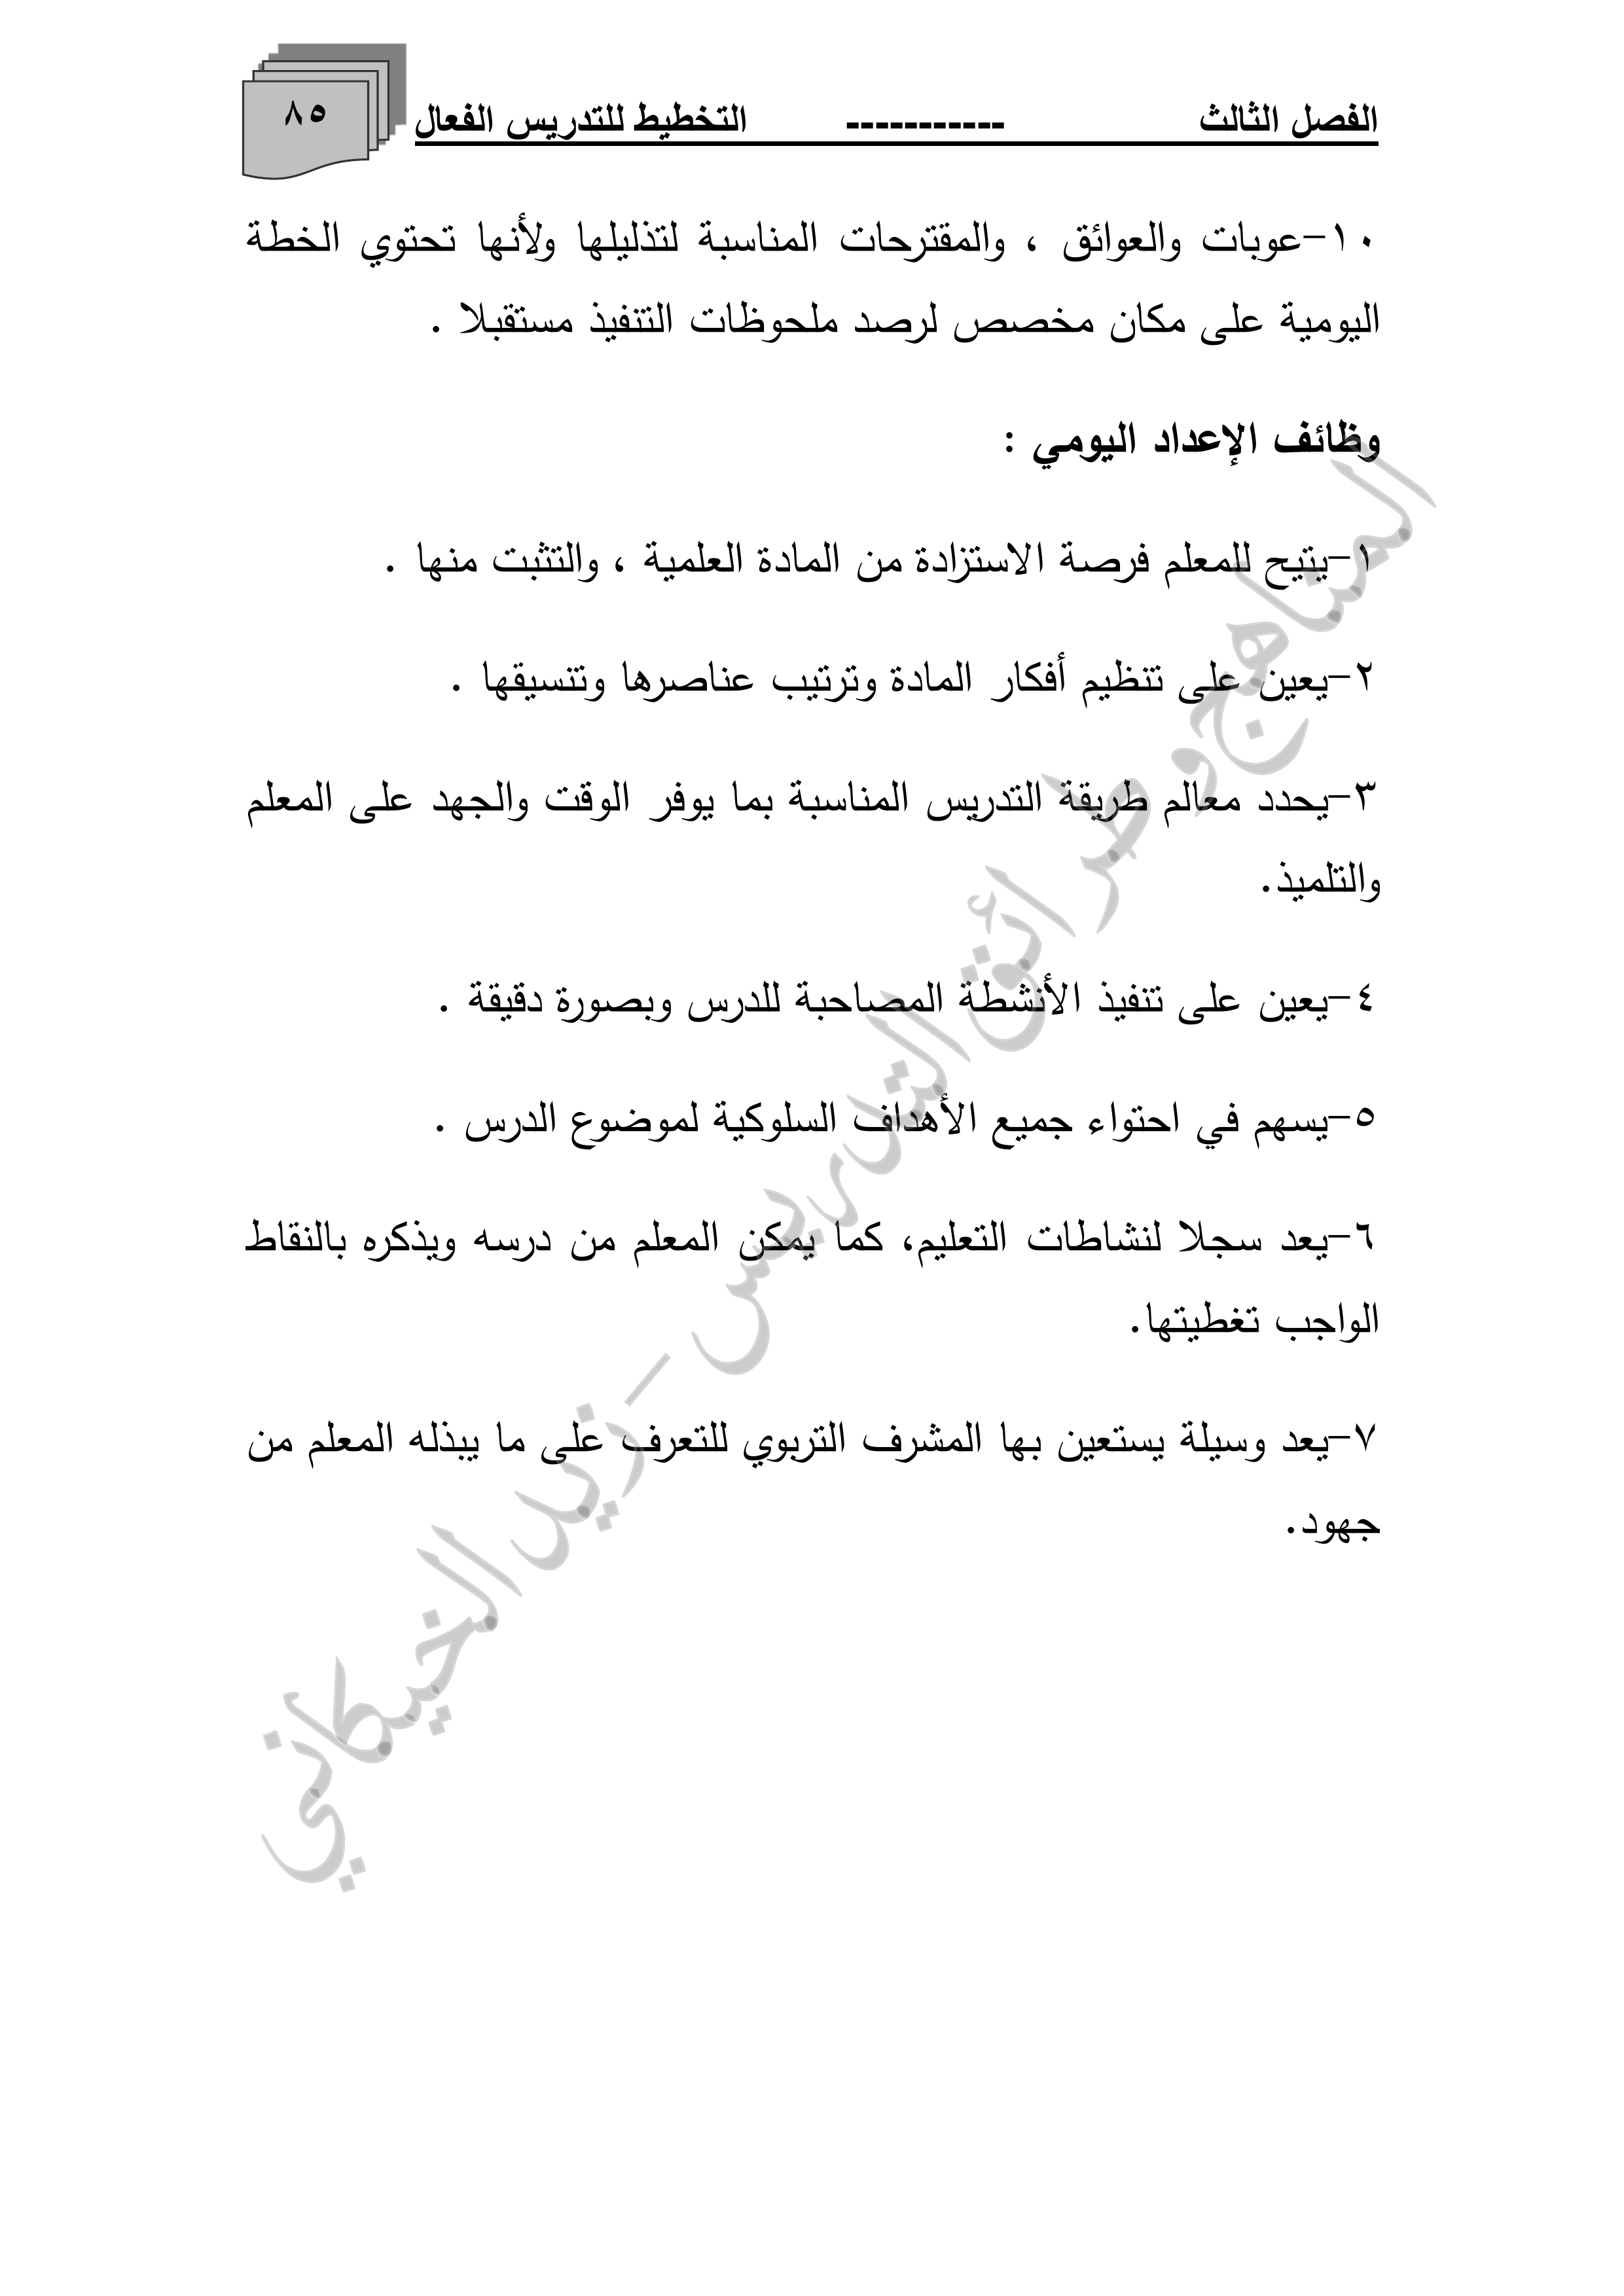 الفصل الثالث ----------- التخطيط للتدريس الفعال
٨٥
١٠-عوبات والعوائق ، والمقترحات المناسبة لتذليلها ولأنها تحتوي الخطة
اليومية على مكان مخصص لرصد ملحوظات التنفيذ مستقبلا .
وظائف الإعداد اليومي :
١-يتيح للمعلم فرصة الاستزادة من المادة العلمية ، والتثبت منها .
٢-يعين على تنظيم أفكار المادة وترتيب عناصرها وتنسيقها .
٣-يحدد معالم طريقة التدريس المناسبة بما يوفر الوقت والجهد على المعلم
والتلميذ.
٤-يعين على تنفيذ الأنشطة المصاحبة للدرس وبصورة دقيقة .
٥-يسهم في احتواء جميع الأهداف السلوكية لموضوع الدرس .
٦-يعد سجلا لنشاطات التعليم، كما يمكن المعلم من درسه ويذكره بالنقاط
الواجب تغطيتها.
٧-يعد وسيلة يستعين بها المشرف التربوي للتعرف على ما يبذله المعلم من
جهود.
المناهج وطرائق التدريس - زيد الخيكاني